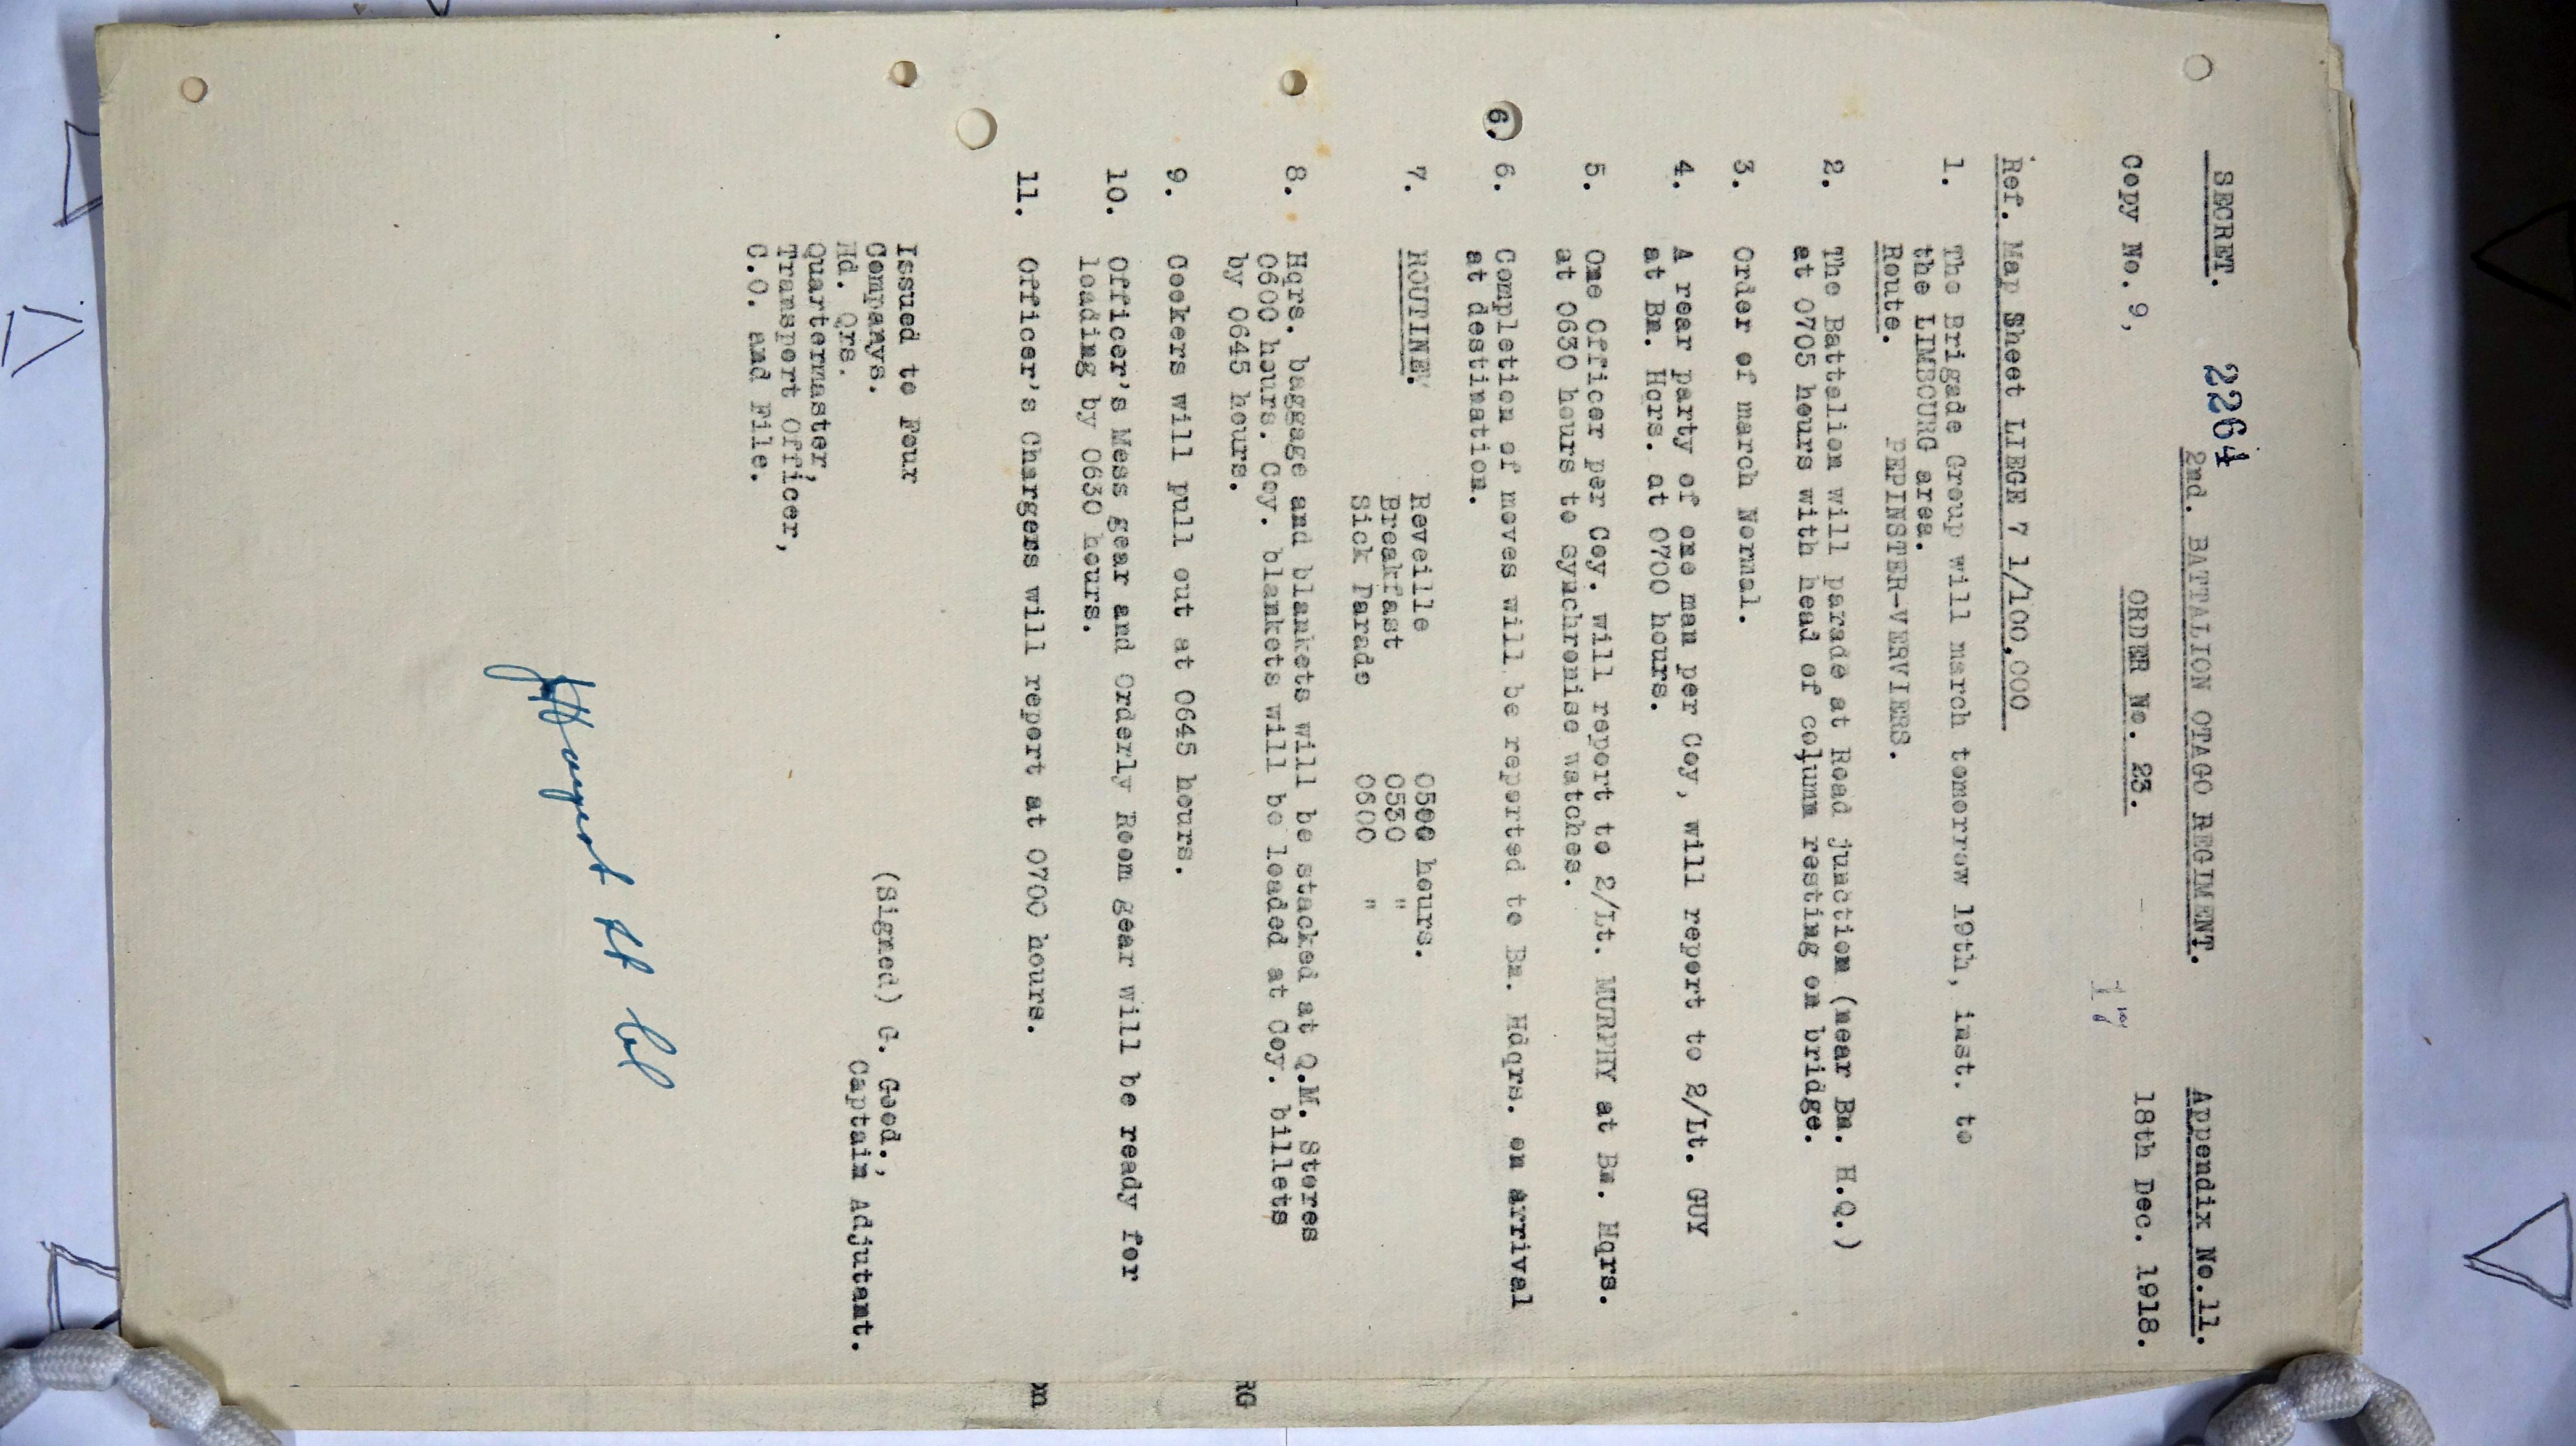 SECRET. 2264 Appendix No.11.
2nd. BATTALION OTAGO REGIMENT.
Copy No. 9, ORDER No. 23. 18th Dec. 1918.
17
Ref. Map Sheet LIEGE 7 1/100,000
1. The Brigade Group will march tomorrow 19th, inst. to
the LIMBOURG area.
Route. PEPINSTER-VERVIERS.
2. The Battalion will parade at Road junction (near Bn. H.Q.)
at 0705 hours with head of column resting on bridge.
3. Order of march Normal.
4. A rear party of one man per Coy, will report to 2/Lt. GUY
at Bn. Hqrs. at 0700 hours.
5. One Officer per Coy. will report to 2/Lt. MURPHY at Bn. Hqrs.
at 0630 hours to synchronise watches.
6. 6. Completion of moves will be reported to Bn. Hdqrs. on arrival
at destination.
7. ROUTINE. Reveille 0500 hours.
Breakfast 0530 "
Sick Parade 0600 "
8. Hqrs. baggage and blankets will be stacked at Q.M. Stores
0600 hours. Coy. blankets will be loaded at Coy. billets
by 0645 hours.
9. Cookers will pull out at 0645 hours.
10. Officer's Mess gear and Orderly Room gear will be ready for
loading by 0630 hours.
11. Officer's Chargers will report at 0700 hours.
(Signed) G. Good.,
Captain Adjutant.
Issued to Four
Companys.
Hd. Qrs.
Quartermaster,
Transport Officer,
C.O. and File.
JHargest Lt Col
RG
m